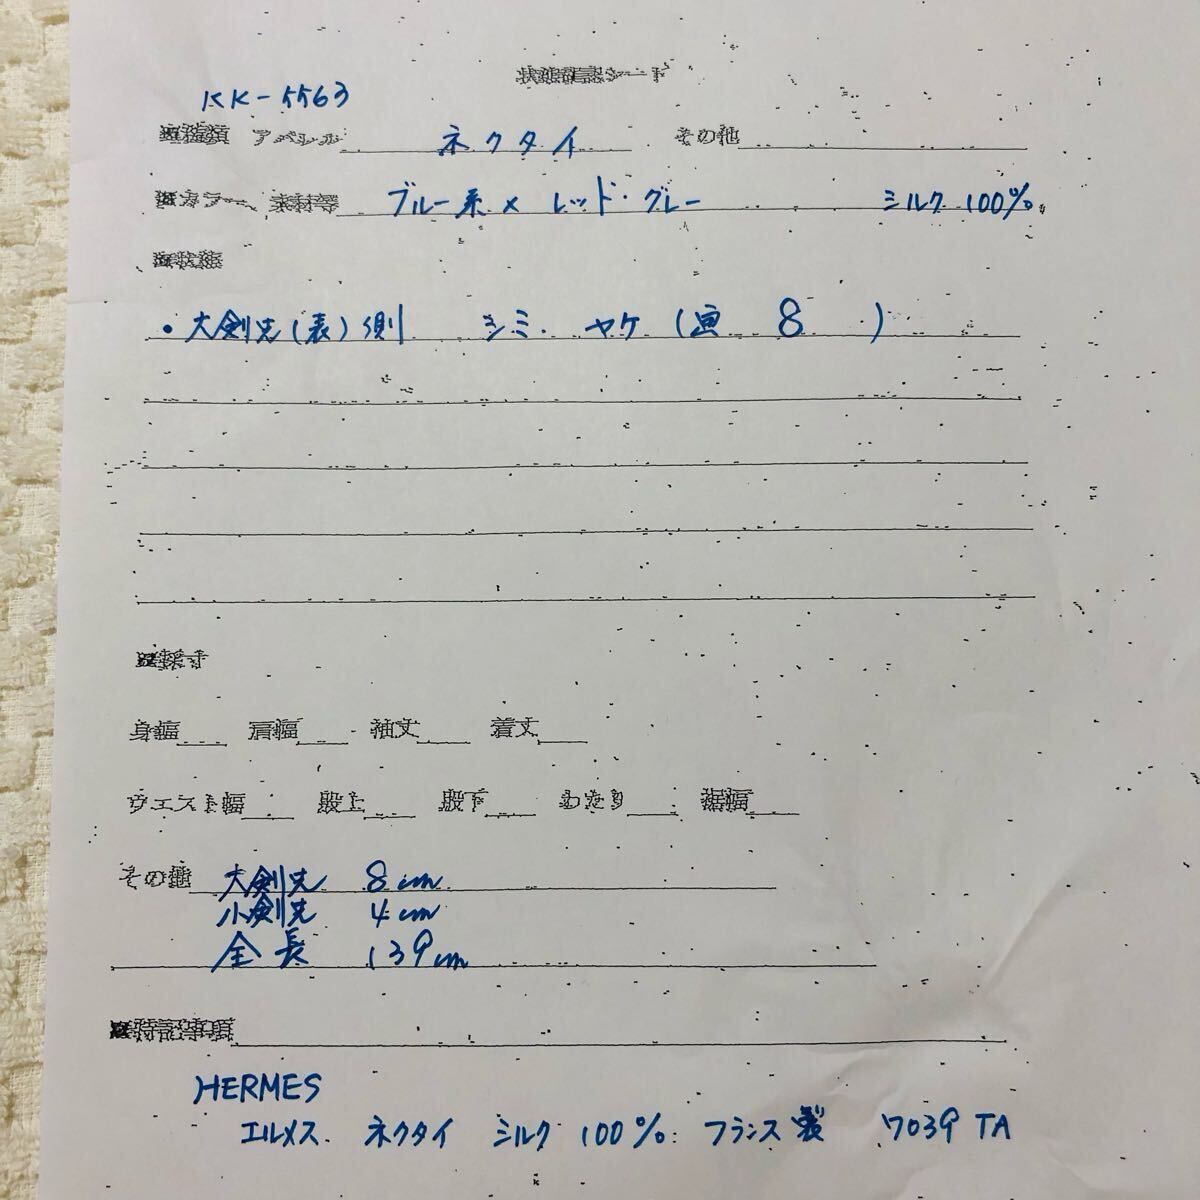 状態確認シート
KK-5563
※種類 アパレル ネクタイ その他
※カラー、素材等 ブルー系×レッド・グレー シルク100%
※状態
・大剣先(表)側 シミ、ヤケ(画 8 )
※採寸
身幅 肩幅 袖丈 着丈
ウエスト幅 股上 股下 わたり 裾幅
その他 大剣先 8cm
小剣先 4cm
全長 139cm
※特記事項
HERMES
エルメス ネクタイ シルク 100% フランス製 7039 TA